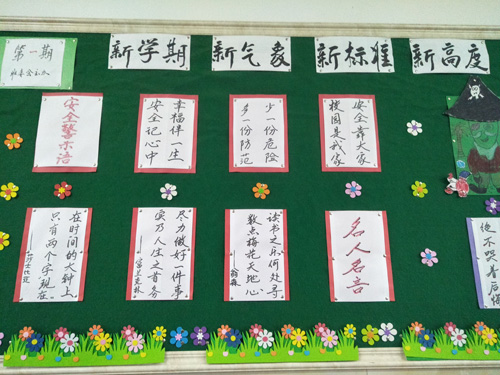 第一期
新学期 新气象 新标准 新高度
安全警示语
幸福伴一生
安全记心中
少一份危险
多一份防范
安全靠大家
校园是我家
在时间的大钟上
只有两个字现在。
——莎士比亚
尽力做好一件事
实乃人生之首务
——富兰克林
读书之乐何处寻
数点梅花天地心
——翁森
名人名言
不哭着后悔